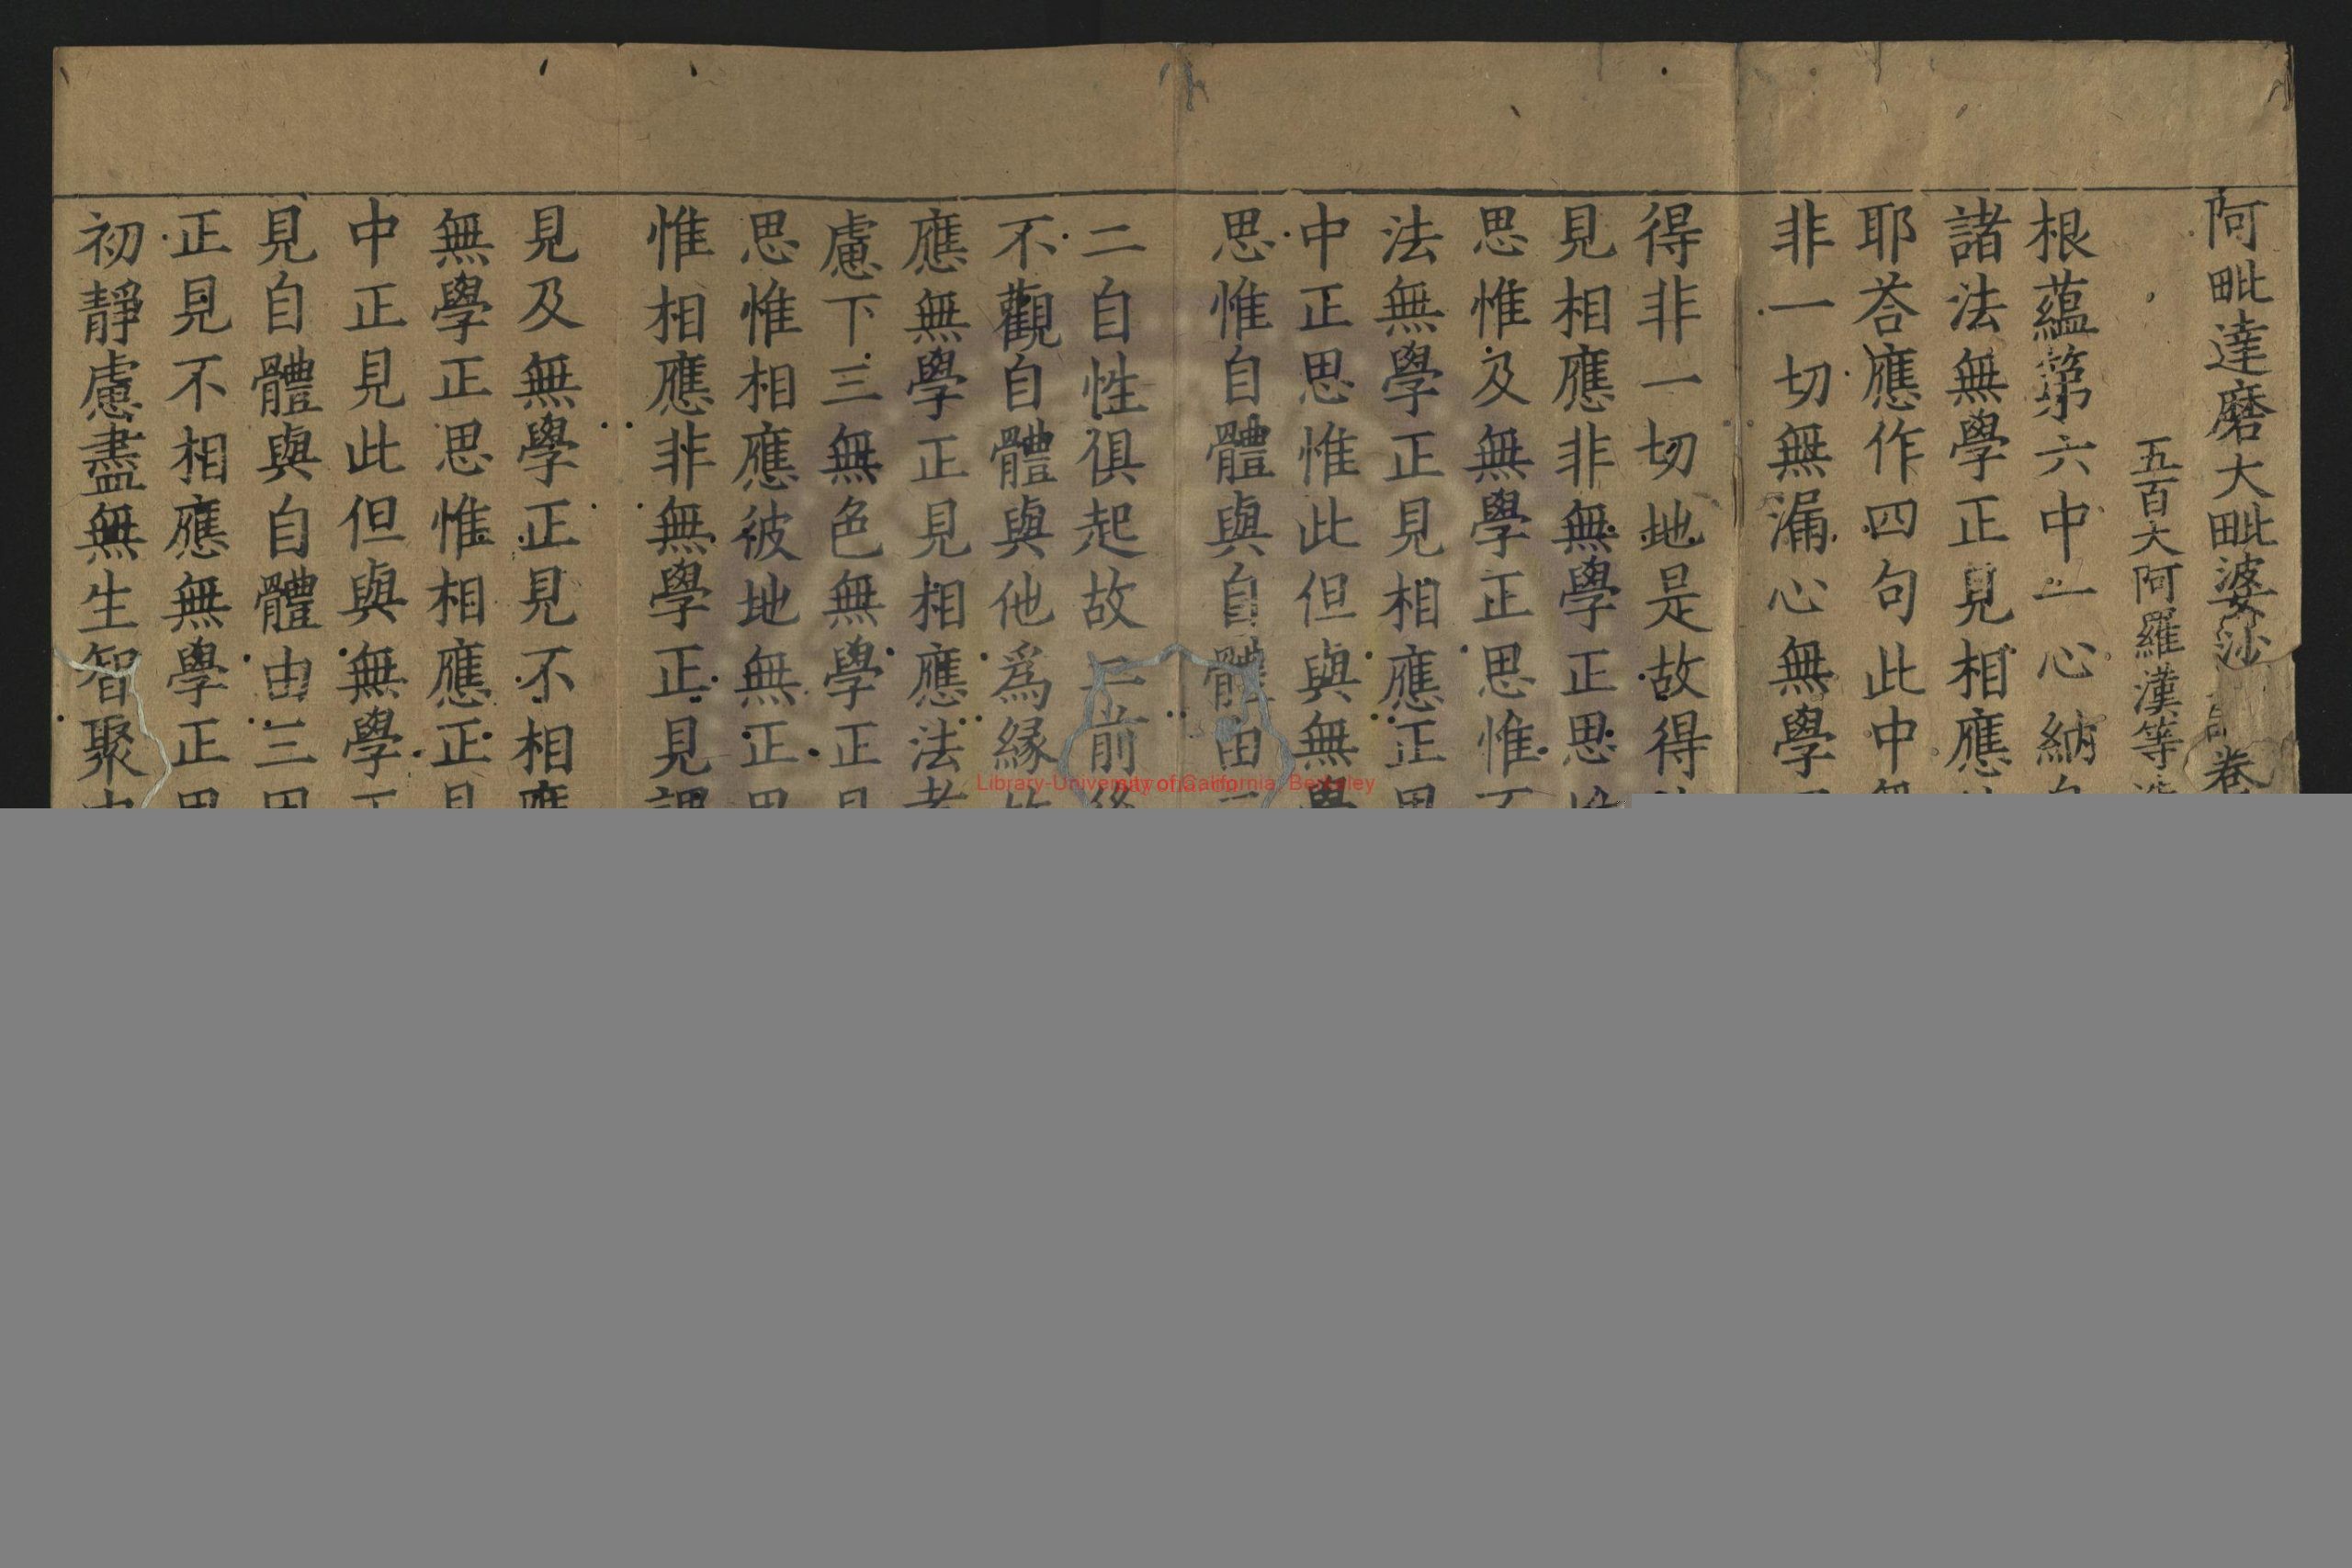 阿毗達磨大毗婆沙卷
五百大阿羅漢等
根蘊第六中一心納
諸法無學正見相應
耶荅應作四句此中
非一切無漏心無學
得非一切地是故得
見相應非無學正思
思惟及無學正思惟
法無學正見相應正
中正思惟此但與無
思惟自體與自體由
二自性俱起故二前
不觀自體與他爲緣
應無學正見相應法
慮下三無色無學正
思惟相應彼地無正
惟相應非無學正見
見及無學正見不相
無學正思惟相應正
中正見此但與無學
見自體與自體由三
正見不相應無學正
初靜慮盡無生智聚